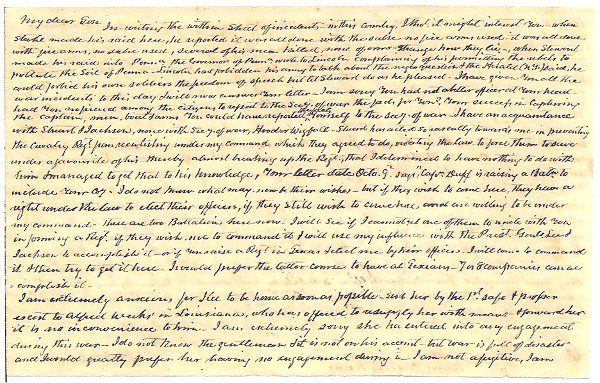 My dear Son
In writing the within sheet of incidents in this Country, I tho't it might interest you - when
Stuart made his raid here, he reported it was all done with the sabre no fire arms used it was all done
with fire arms, no sabre used, several of his men killed, none of ours - Strange how they lie - when Stewart
made his raid into Penn.a the Governor of Penn.a wrote to Lincoln complaining of his permitting the rebels to
pollute the Soil of Penna - Lincoln had forbidden his army to talk about the negro question & the Herald N.Y. Says, he
could forbid his own soldiers the freedom of speech but let Stewart do as he pleased - I have given you all the
war incidents to this day, I will now answer your letter - I am sorry you had not a better officer at your head -
had you no friend among the citizens to report to the Sec'y of war the facts, for you? Your success in capturing
the Captain, men, boat & arms you could have reported yourself to the Sec'y of war - I have an acquaintance
with Stuart & Jackson, none with Sec'y of war, Hood or Wigfall - Stuart has acted so rascally towards me in preventing
the Cavalry Reg.t from recruiting under my command which they agreed to do, violating the law to force them to serve
under a favourite of his thereby almost breaking up the Reg.t, that I determined to have nothing to do with
him & managed to get that to his knowledge, Your letter date Octo. 9. says, Cap.n Duff is raising a Bat.n to
include your Co.y - I do not know what may now be their wishes - but if they wish to come here, they have a
right under the law to elect their officers, if they still wish to come here, and are willing to be under
my command - There are two Battalions here now - I will see if I cannot get one of them to unite with you
in forming a Reg.t if they wish me to command it I will use my influence with the Prest. Genl. Lee &
Jackson to accomplish it - or if you raise a Reg.t in Texas & elect me by their officers I will come & command
it & then try to get it here - I would prefer the latter course to have all Texians - 7 or 8 companies can ac-
complish it -
I am extremely anxious for Kee to be home as soon as possible - send her by the 1st safe & proper
escort to Alfred Weeks in Louisiana, who has offered to supply her with means & forward her
it is no inconvenience to him - I am extremely sorry she has entered into any engagement
during this war - I do not know the gentleman & it is not on his account - but war is full of disaster
and I would greatly prefer her having no engagement during it - I am not a fugitive, I am